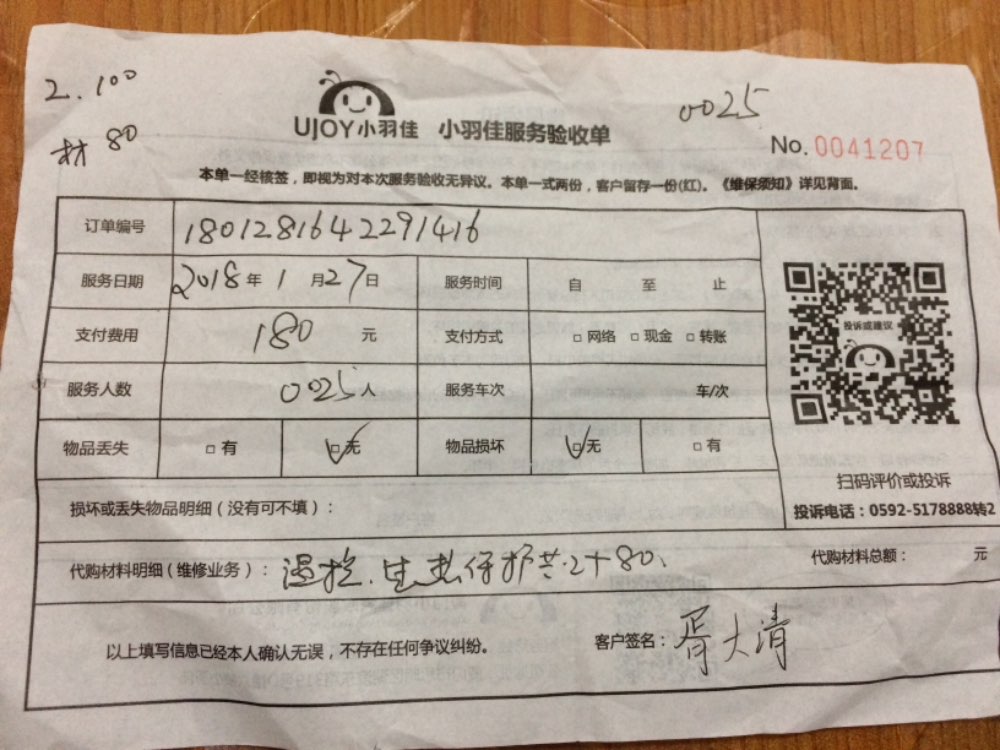 2.100
材 80
0025
UJOY小羽佳 小羽佳服务验收单
No. 0041207
本单一经核签，即视为对本次服务验收无异议。本单一式两份，客户留存一份(红)。《维保须知》详见背面。
订单编号 1801281642291416
服务日期 2018年 1 月27日 服务时间 自 至 止
支付费用 180 元 支付方式 □网络 □现金 □转账
服务人数 0025人 服务车次 车/次
物品丢失 □有 □无 物品损坏 □无 □有
投诉或建议
扫码评价或投诉
投诉电话：0592-5178888转2
损坏或丢失物品明细（没有可不填）：
代购材料明细（维修业务）：温控 2+80 代购材料总额： 元
以上填写信息已经本人确认无误，不存在任何争议纠纷。 客户签名：胥大清